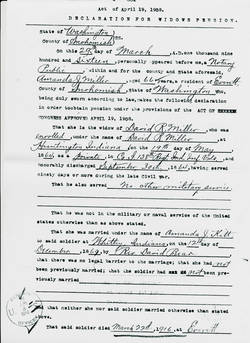 Act of April 19, 1908.
DECLARATION FOR WIDOWS PENSION.
State of Washington
County of Snohomish
On this 29 day of March, A.D. one thousand nine
hundred and sixteen, personally appeared before me, a Notary
Public within and for the county and State aforesaid,
Amanda J. Miller, aged 66 years, a resident of Everett
County of Snohomish, State of Washington who,
being duly sworn according to law, makes the following declaration
in order to obtain pension under the provisions of the ACT OF
CONGRESS APPROVED APRIL 19, 1908.
That she is the widow of David R Miller, who was
enrolled under the name of David R Miller, at
Huntington Indiana on the 19th day of May
186, as Private, in Co. 138 Regt Ind Vols, and
honorably discharged September 30th, 186, having served
ninety days or more during the late civil war.
That he also served No other military service
That he was not in the military or naval service of the United
States otherwise than as above stated.
That she was married under the name of Amanda J.
to said soldier at Indiana on the 12th day of
December, 1869, by Rev David
that there was no legal barrier to the marriage; that she had not
been previously married; that the soldier had not been pre-
viously married
and that neither she nor said soldier married otherwise than stated
above.
That said soldier died March 22nd, 1916, at Everett